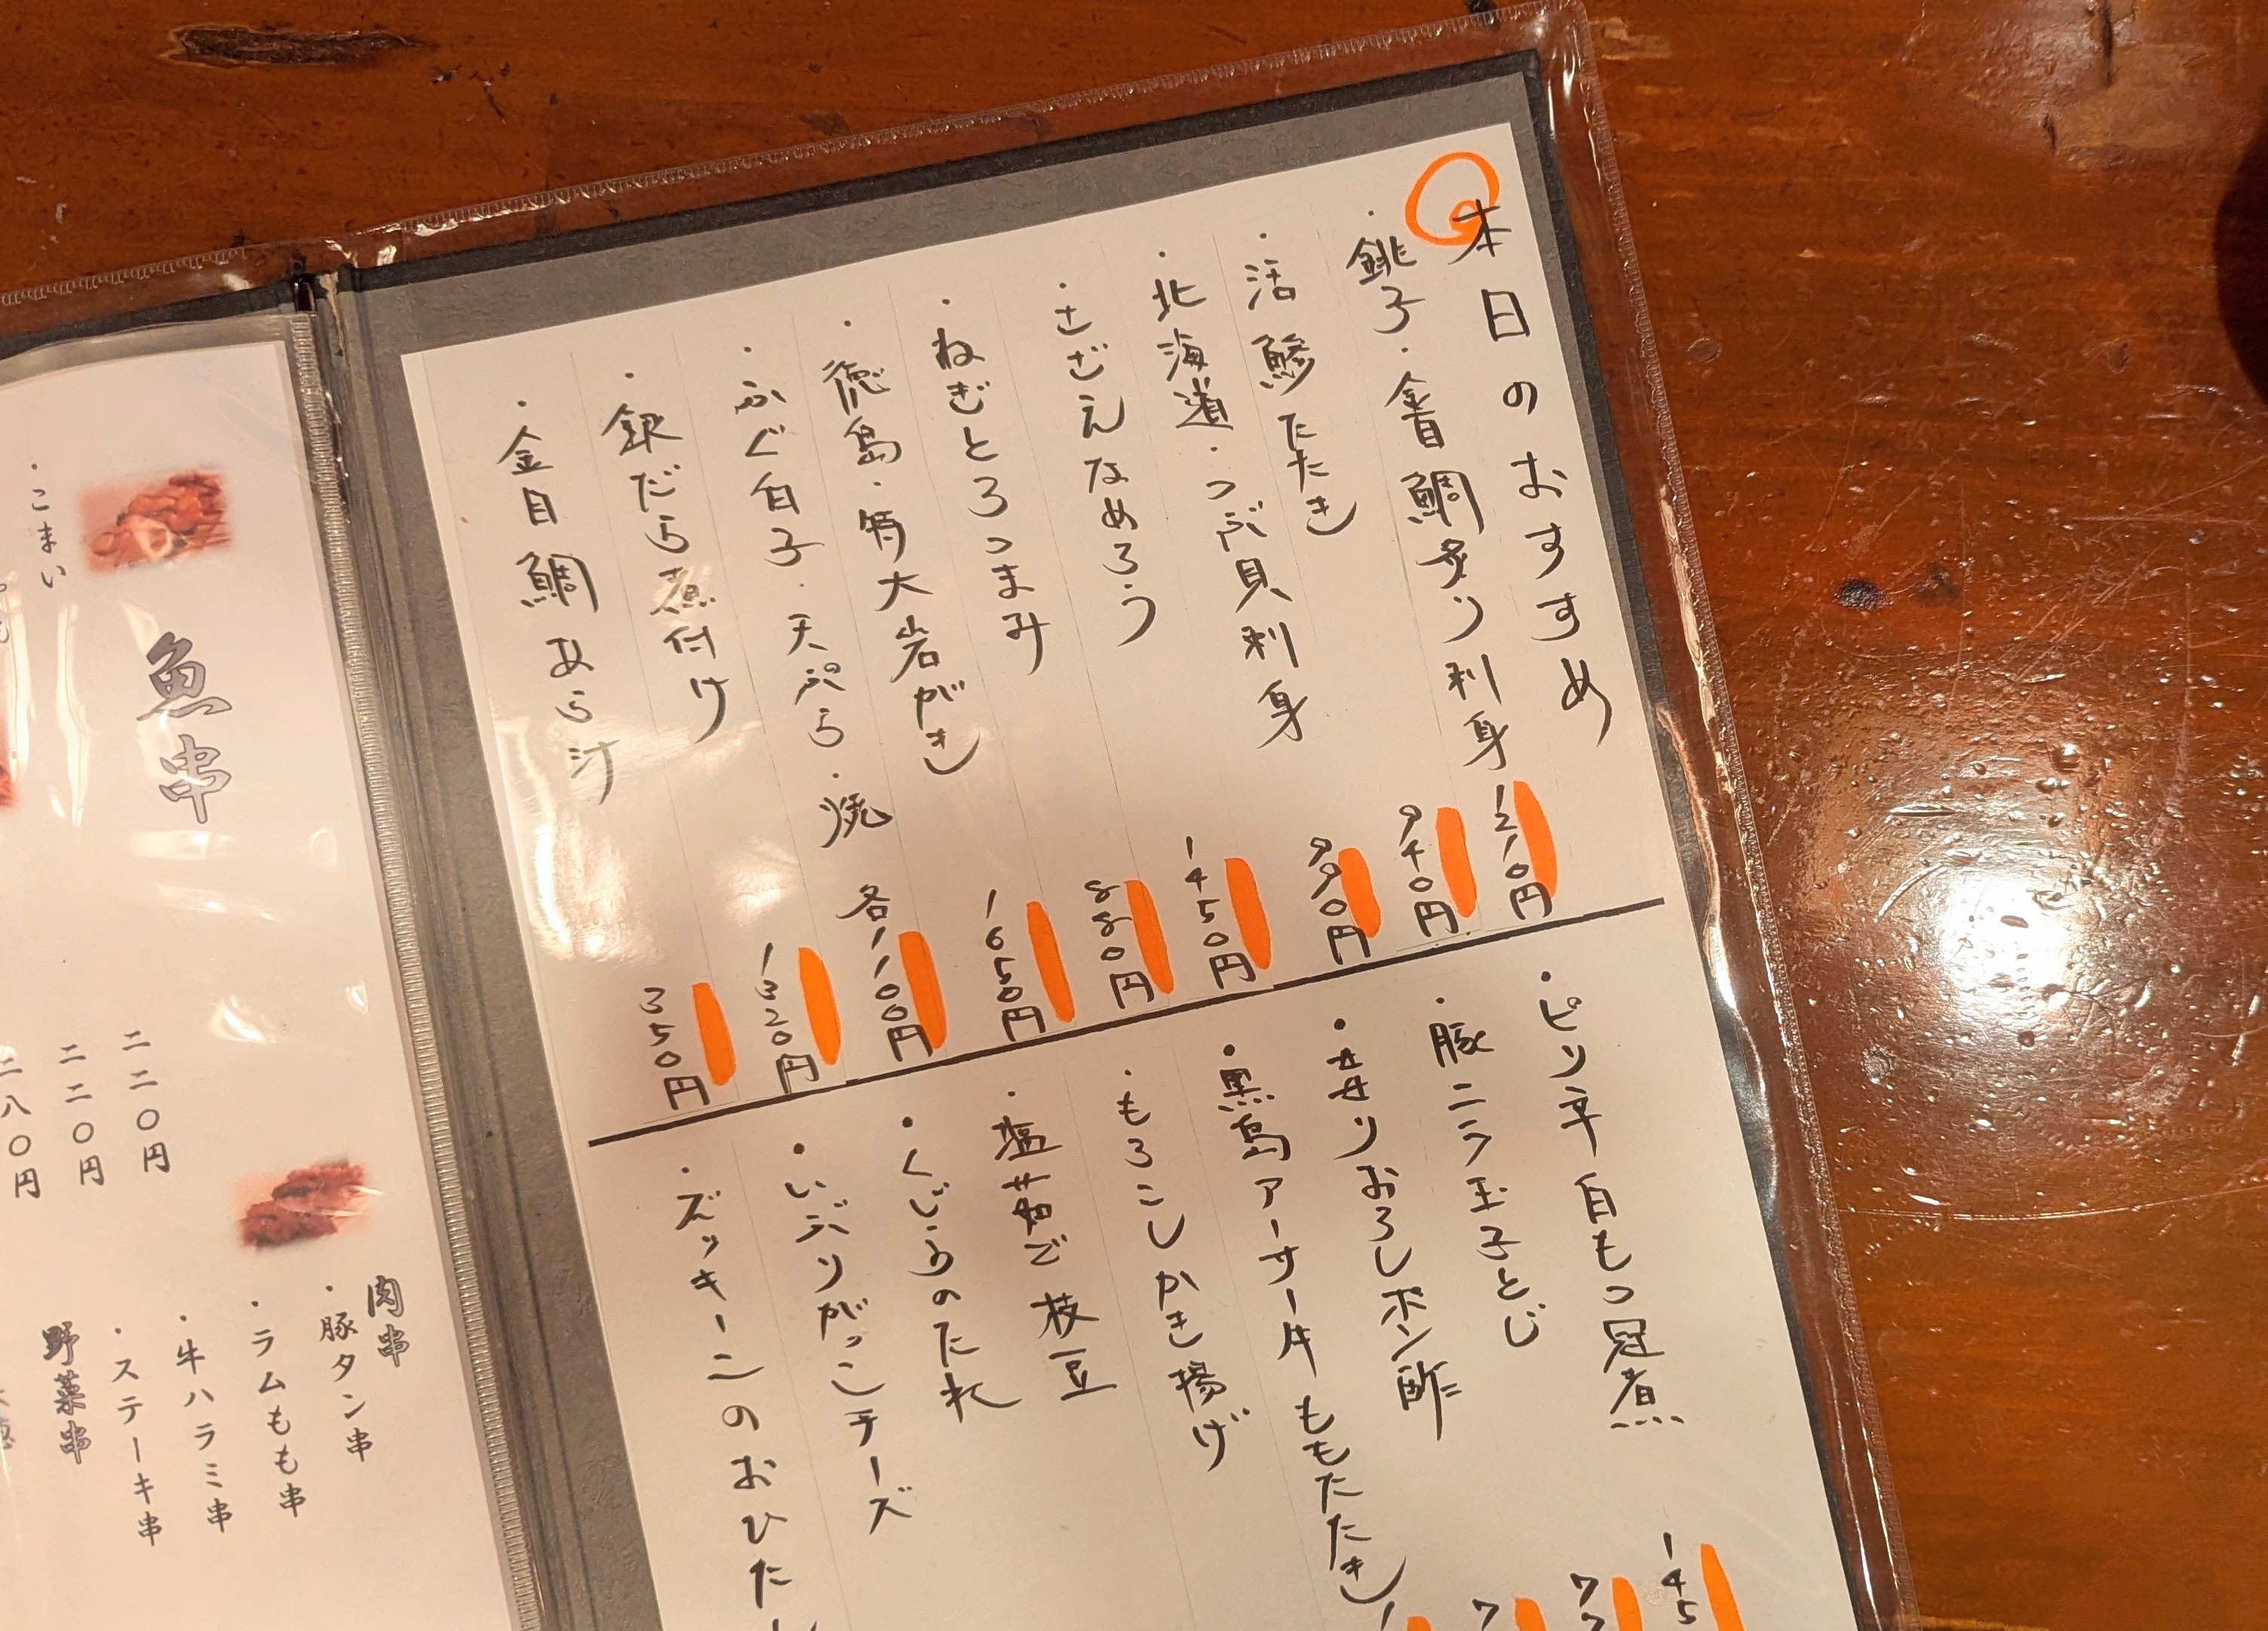 本日のおすすめ
・銚子・金目鯛炙り刺身 1210円
・活鯵たたき 940円
・北海道・つぶ貝刺身 990円
・さざえなめろう 1450円
・ねぎとろつまみ 880円
・徳島・特大岩がき 1650円
・ふぐ白子・天ぷら・焼 各1100円
・銀だら煮付け 1320円
・金目鯛あら汁 350円
・ピン辛白もつ冠煮
・豚ニラ玉子とじ
・せせりおろしポン酢
・黒島アーサー牛ももたたき
・もろこしかき揚げ
・塩茹で枝豆
・くじらのたれ
・いぶりがっこチーズ
・ズッキーニのおひたし
魚串
・こまい
二二〇円
二二〇円
二八〇円
肉串
・豚タン串
・ラムもも串
・牛ハラミ串
・ステーキ串
野菜串